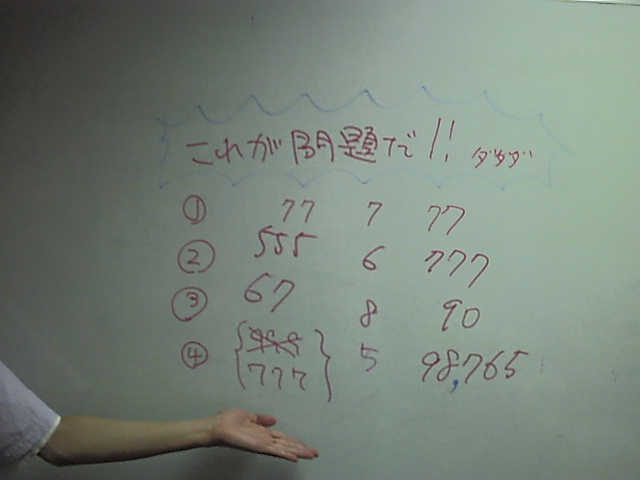 これが問題だ!! ダダダ
① 77 7 77
② 555 6 777
③ 67 8 90
④ { 777 } 5 98,765